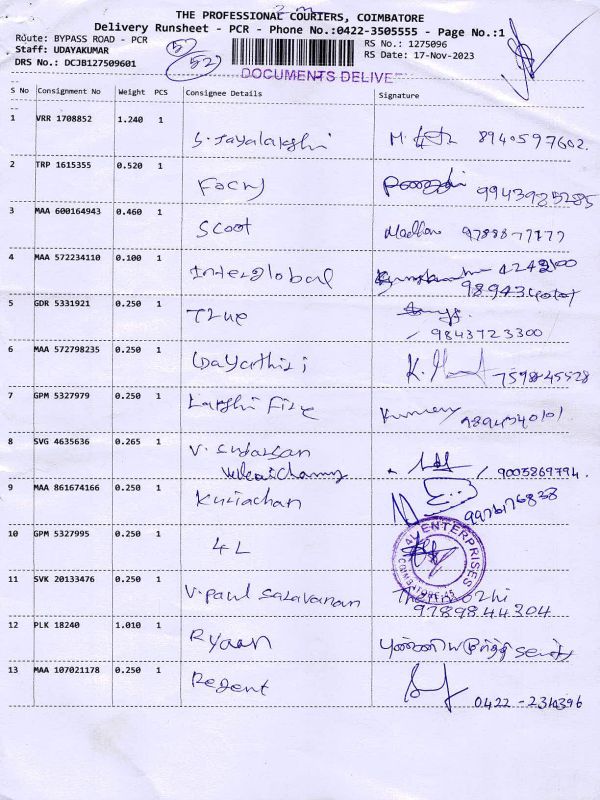 THE PROFESSIONAL COURIERS, COIMBATORE
Delivery Runsheet - PCR - Phone No.:0422-3505555 - Page No.:1
Route: BYPASS ROAD - PCR
Staff: UDAYAKUMAR
DRS No.: DCJB127509601
52
52
RS No.: 1275096
RS Date: 17-Nov-2023
DOCUMENTS DELIVE
S No Consignment No Weight PCS Consignee Details Signature
1 VRR 1708852 1.240 1
S. Jayalakshi 8940597602.
2 TRP 1615355 0.520 1
Focus 9943925285
3 MAA 600164943 0.460 1
Scoot Madhav
4 MAA 572234110 0.100 1
Interglobal 4242100
5 GDR 5331921 0.250 1
True
9843723300
6 MAA 572798235 0.250 1
Udayarthi K. 7598845528
7 GPM 5327979 0.250 1
Lakshi Fire
8 SVG 4635636 0.265 1
V. Sudarsan
Vellaichamy / 9005869794.
9 MAA 861674166 0.250 1
Kuriachan 9976176838
10 GPM 5327995 0.250 1
4L
ENTERPRISES
11 SVK 20133476 0.250 1
V. Paul Saravanan Thenmozhi
9789844304
12 PLK 18240 1.010 1
Ryaan
13 MAA 107021178 0.250 1
Regent